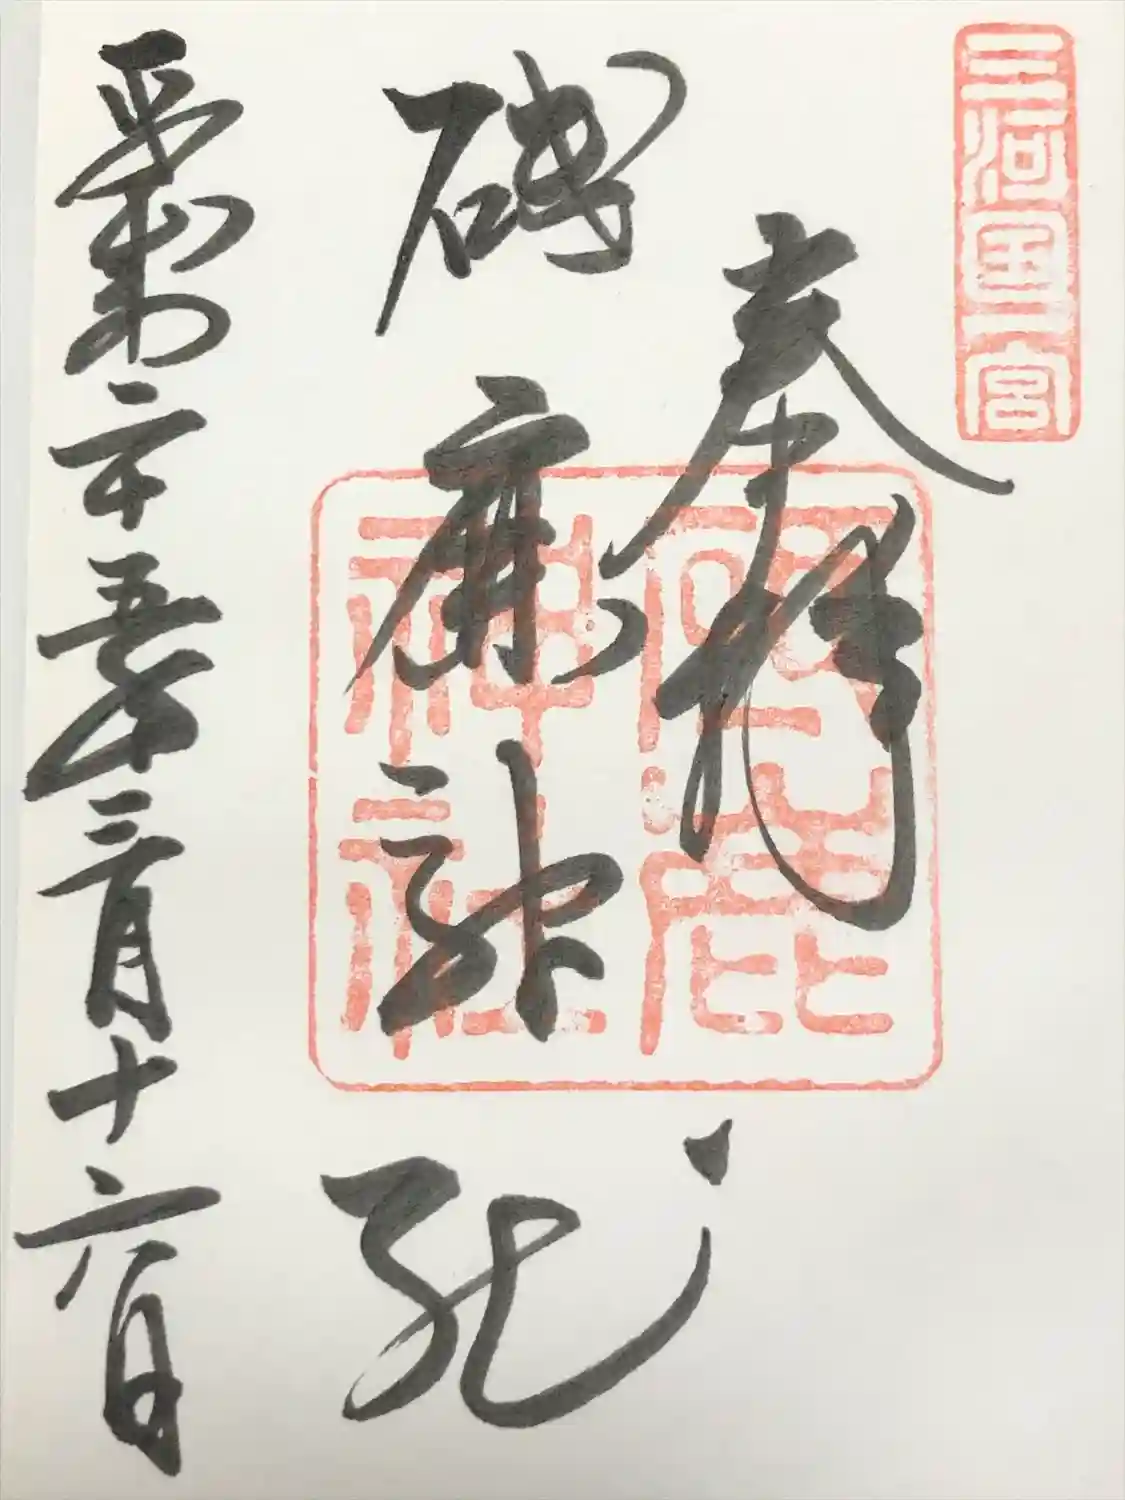 三河国一宮
奉拝
砥鹿神社
砥鹿
神社
平成二十五年三月十六日